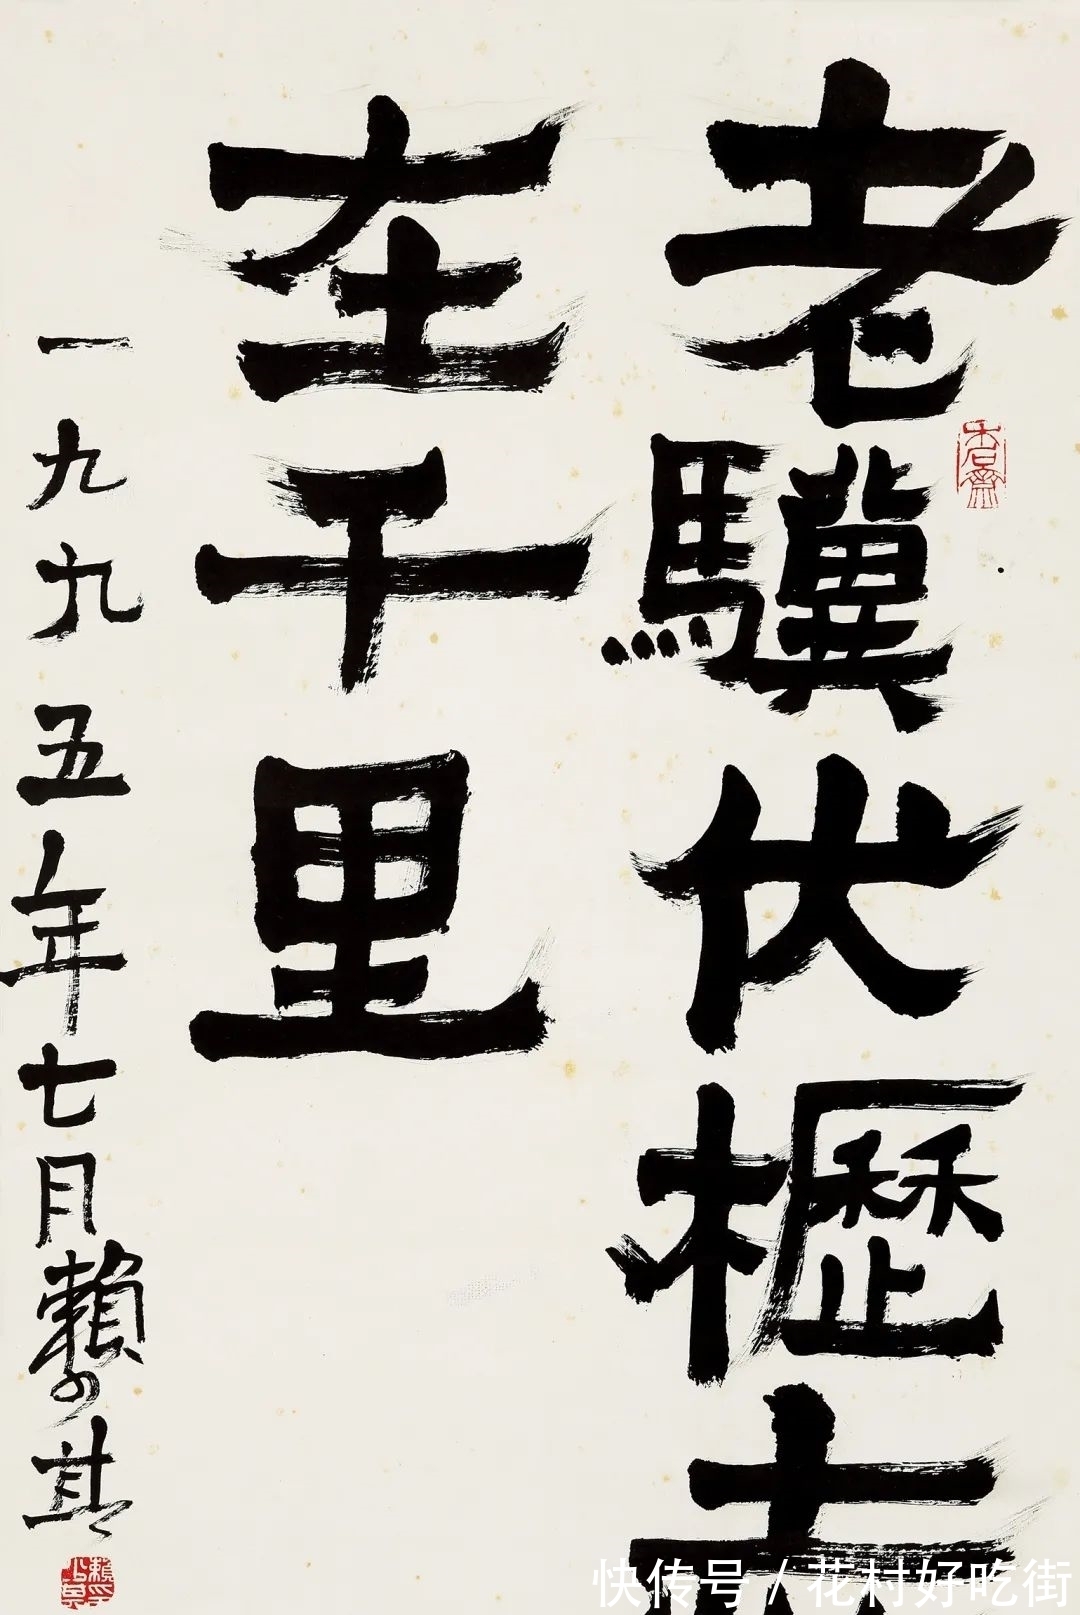 老驥伏櫪志
在千里
一九九五年七月賴少其
木石齋
快传号 / 花村好吃街